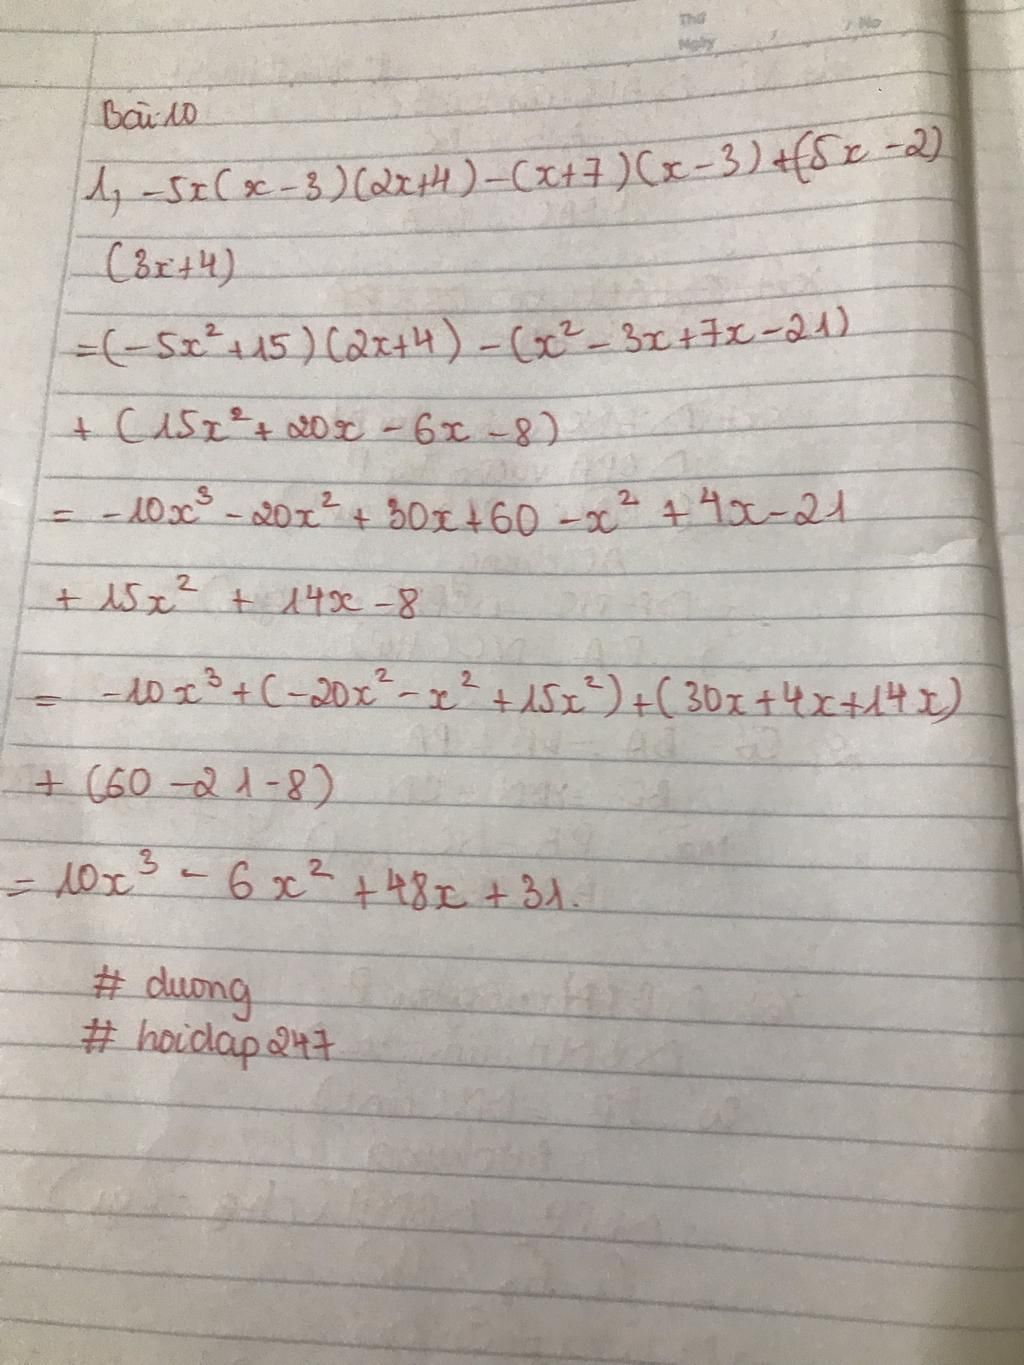 Thứ
Ngày
, No
Bài 10
1, -5x(x-3)(2x+4)-(x+7)(x-3)+(5x-2)
(3x+4)
=(-5x²+15)(2x+4)-(x²-3x+7x-21)
+(15x²+20x-6x-8)
= -10x³-20x²+30x+60-x²+4x-21
+15x²+14x-8
= -10x³+(-20x²-x²+15x²)+(30x+4x+14x)
+(60-21-8)
=10x³-6x²+48x+31.
# duong
# hoidap247